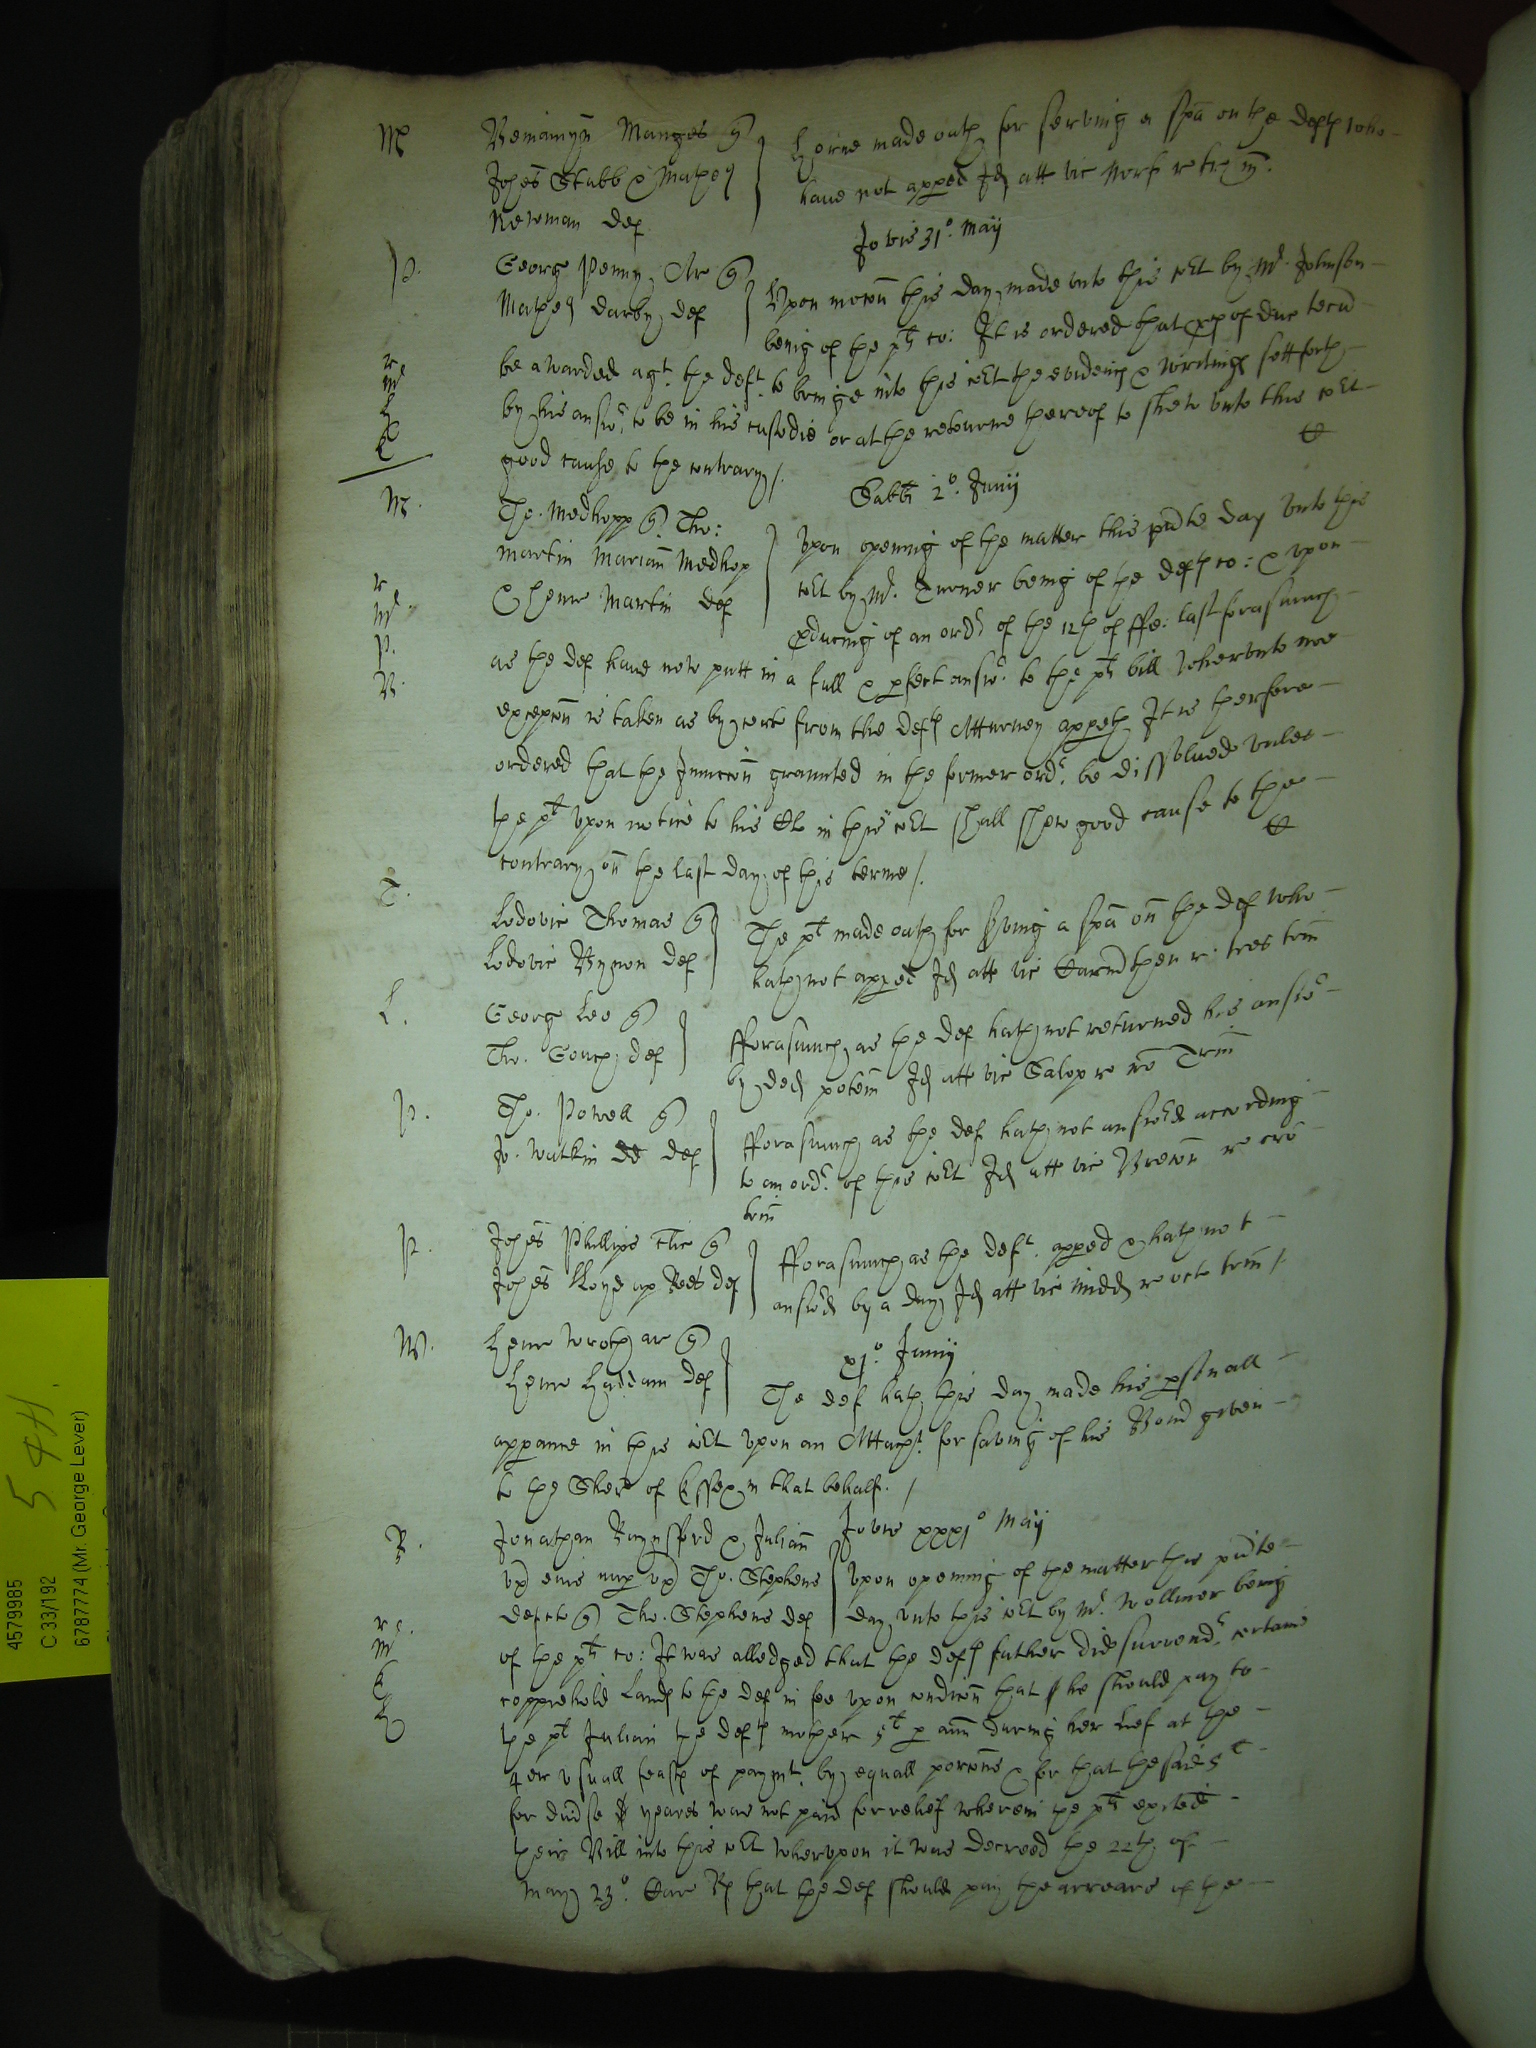 M Beniamyn Manges
Johes Stubb & Mathew
Newman def
Horne made oath for serving a spa on the defts who
have not apped Id att vic Norf
Jovis 31°. Maij
P. George Penny
Mathew Darby def
Upon mocon this day made unto this cort by Mr. Johnson
being of the plt co: It is ordered that of duc tecu
be awarded agt. the deft. to bringe into this cort the evidences & writings sett forth
by his answr to be in his custodie or at the retourne thereof to shew unto this cort
good cause to the contrary /.
Sabti 2°. Junij
M. Tho. Medhopp Tho:
Martin Marian Medhop
& Henr Martin def
Upon opening of the matter this pnte day unto this
cort by Mr. Turner being of the defts co: & upon
pducing of an ordr of the 12th of ffe: last forasmuch
as the def have now putt in a full & pfect answr. to the plts bill wherunto noe
excepcon is taken as by cert from the defts Atturney appeth It is therfore
ordered that the Iniunccon graunted in the former ordr. be dissolued unles
the plt upon notice to his Clt in this cort shall shew good cause to the
contrary on the last day of this terme /.
T. Lodovic Thomas
Lodovic Bynon def
The plt made oath for sving a spa on the def who
hath not apped Id att vic Carmrthen r: tres trin
L. George Lee
Tho. def
fforasmuch as the def hath not returned his answr
by ded potem Id att vic Salop re Trin
P. Tho. Powell
Jo. Watkin def
fforasmuch as the def hath not answred according
to an ordr. of this cort Id att vic Brecon re cro
trin
P. Johes Phillips Clic
Johes lloyd ap Rees def
fforasmuch as the deft. apped & hath not
answrd by a day Id att vic Midd re octo trin /.
W. Henr Wroth ar
Henr def
xj°. Junij
The def hath this day made his psonall
apparance in this cort upon an Attachmt. for saving of his Bond given
to the Sherr of Essex in that behalf. /
Jovis xxxj° Maij
R. Jonathan Raynsford & Julian
ux eius nup ux Tho. Stephens
defcto Tho. Stephens def
Upon opening of the matter this pnte
day unto this cort by Mr. Wollmer being
of the plts co: It was alledged that the defts father did surrendr. certaine
coppiehold lands to the def in fee upon condicon that he should pay to
the plt Julian the defts mother 5l p ann during her lief at the
4er usuall feasts of paymt. by equall porcons & for that the said 5l
for divrse yeares was not paid for relief wherein the plts exited
their Bill into this cort wherupon it was decreed the 22th of
May 23°. Car R that the def should pay the arreares of the
4579985
C 33/192
6787774 (Mr. George Lever)